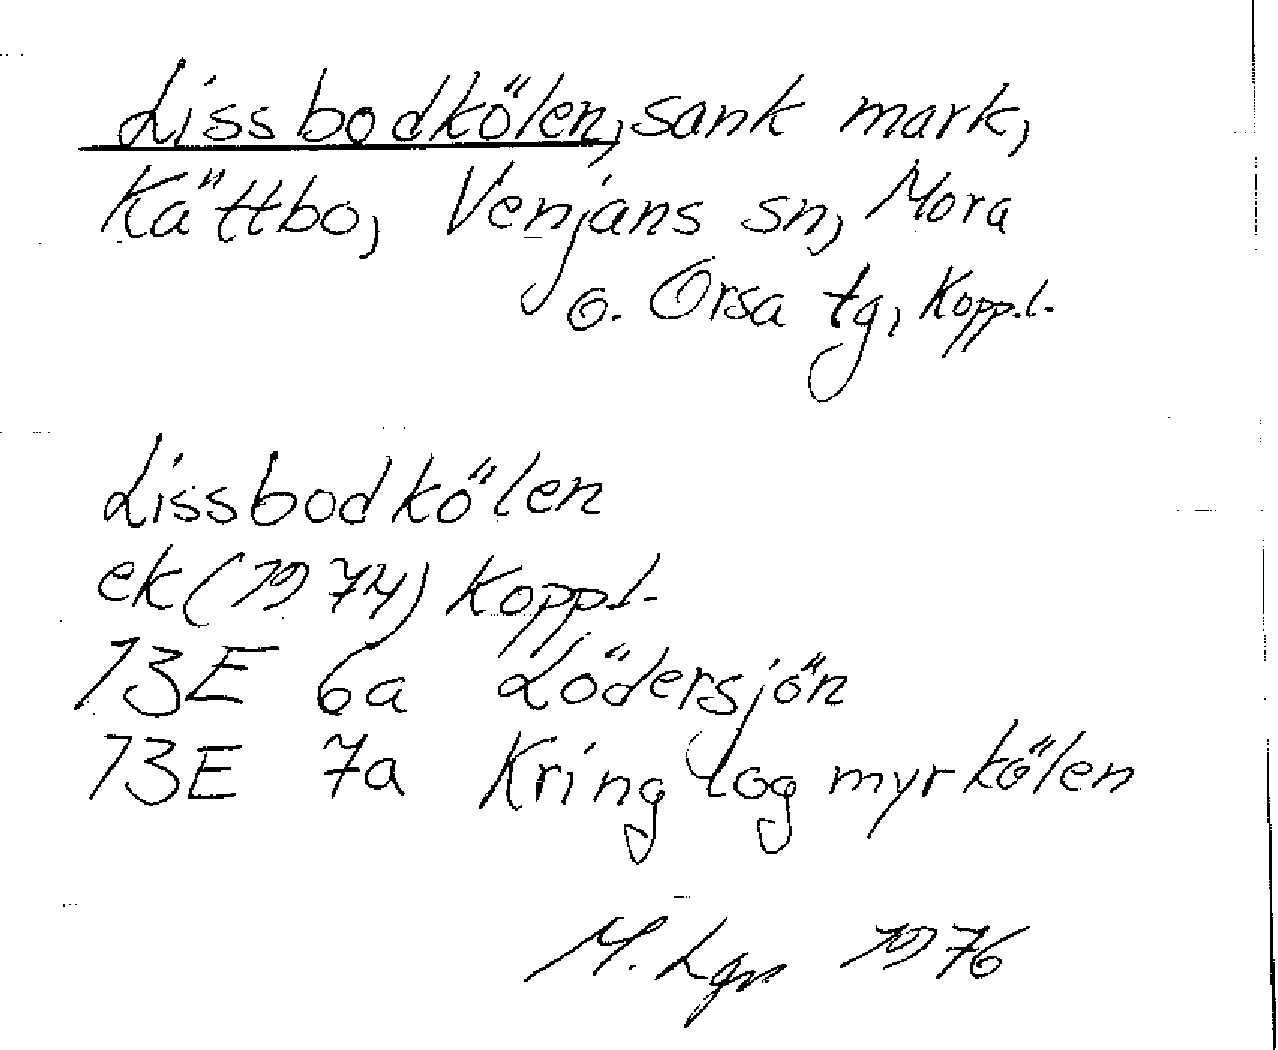 Lissbodkölen, sank mark,
Kättbo, Venjans sn, Mora
o. Orsa tg, Kopp.l.
Lissbodkölen
ek (1974) Kopp.l.
13E 6a Lödersjön
13E 7a Kringlogmyrkölen
M. Lgr 1976